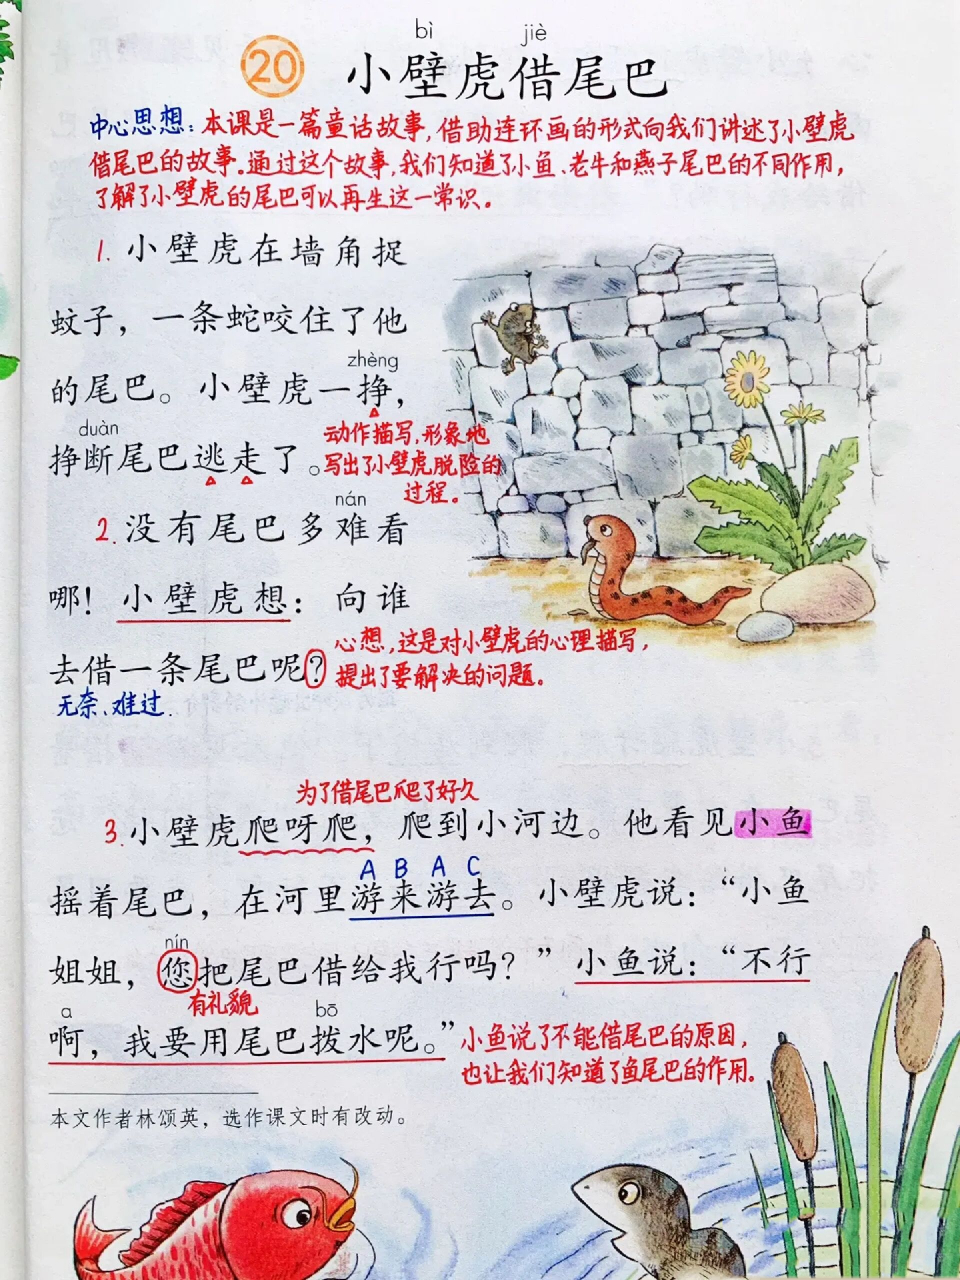 bì jiè
20 小壁虎借尾巴
中心思想：本课是一篇童话故事，借助连环画的形式向我们讲述了小壁虎
借尾巴的故事。通过这个故事，我们知道了小鱼、老牛和燕子尾巴的不同作用，
了解了小壁虎的尾巴可以再生这一常识。
1. 小壁虎在墙角捉
蚊子，一条蛇咬住了他
zhèng
的尾巴。小壁虎一挣，
duàn
挣断尾巴逃走了。
动作描写，形象地
写出了小壁虎脱险的
过程。
nán
2. 没有尾巴多难看
哪！小壁虎想：向谁
去借一条尾巴呢？
心想，这是对小壁虎的心理描写，
提出了要解决的问题。
无奈、难过.
为了借尾巴爬了好久
3. 小壁虎爬呀爬，爬到小河边。他看见小鱼
A B A C
摇着尾巴，在河里游来游去。小壁虎说：“小鱼
nín
姐姐，您把尾巴借给我行吗？”小鱼说：“不行
有礼貌
a bō
啊，我要用尾巴拨水呢。”
小鱼说了不能借尾巴的原因，
也让我们知道了鱼尾巴的作用。
本文作者林颂英，选作课文时有改动。